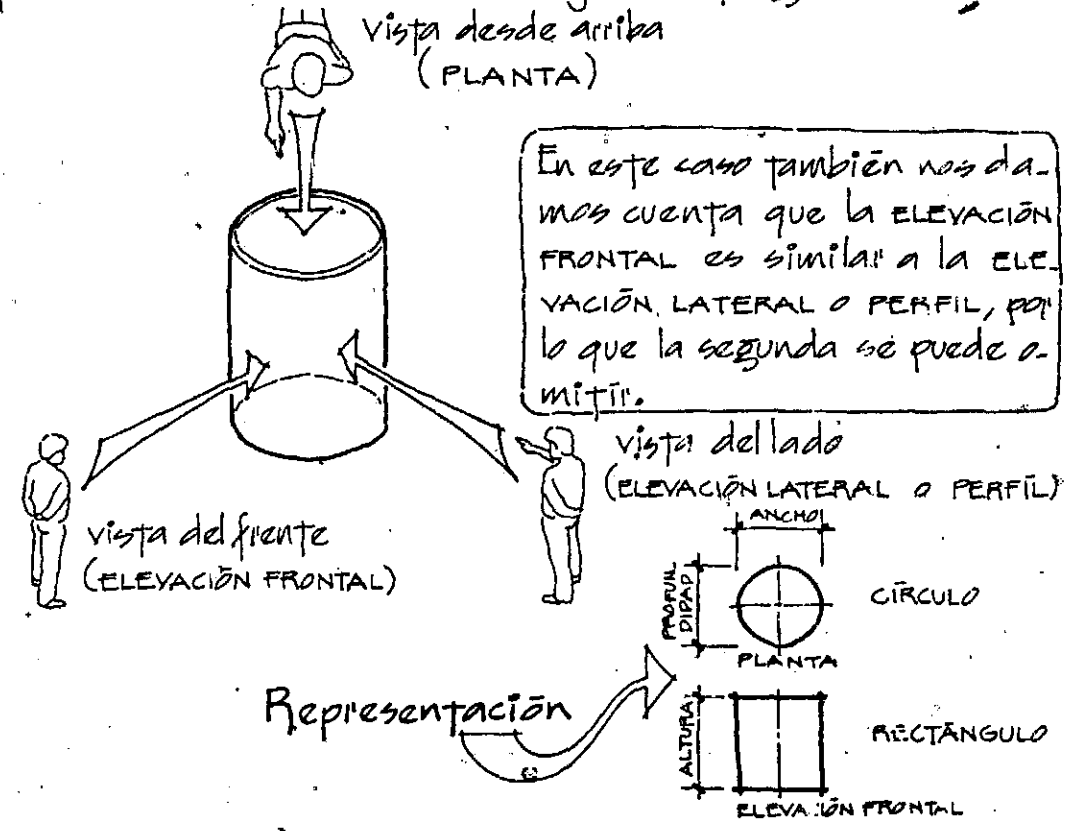 vista desde arriba
(PLANTA)
En este caso también nos da-
mos cuenta que la ELEVACIÓN
FRONTAL es similar a la ELE-
VACIÓN LATERAL O PERFIL, por
lo que la segunda se puede o-
mitir.
vista del lado
(ELEVACIÓN LATERAL O PERFIL)
vista del frente
(ELEVACIÓN FRONTAL)
ANCHO
PROFUN
DIDAD
CÍRCULO
PLANTA
Representación
ALTURA
RECTÁNGULO
ELEVACIÓN FRONTAL